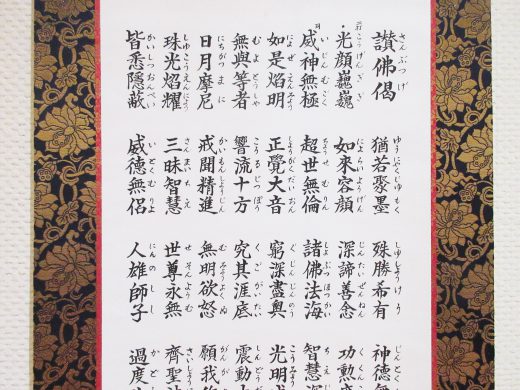 讃佛偈
さんぶつげ
光顔巍巍
こうげんぎぎ
威神無極
いじんむごく
如是焔明
によぜえんみよう
無與等者
むよとうしや
日月摩尼
にちがつまに
珠光焔耀
しゆこうえんによう
皆悉隱蔽
かいしつおんぺい
猶若聚墨
ゆうにやくじゆもく
如來容顔
によらいようげん
超世無倫
ちようせむりん
正覺大音
しようがくだいおん
響流十方
こうるじつぽう
戒聞精進
かいもんしようじん
三昧智慧
さんまいちえ
威德無侶
いとくむりよ
殊勝希有
しゆしようけう
深諦善念
じんたいぜんねん
諸佛法海
しよぶつほうかい
窮深盡奧
ぐじんじんのう
究其涯底
くごがいたい
無明欲怒
むみようよくぬ
世尊永無
せそんようむ
人雄師子
にんのうしし
神德無
功勲
智慧
光明
震動
願我
齊聖
過度